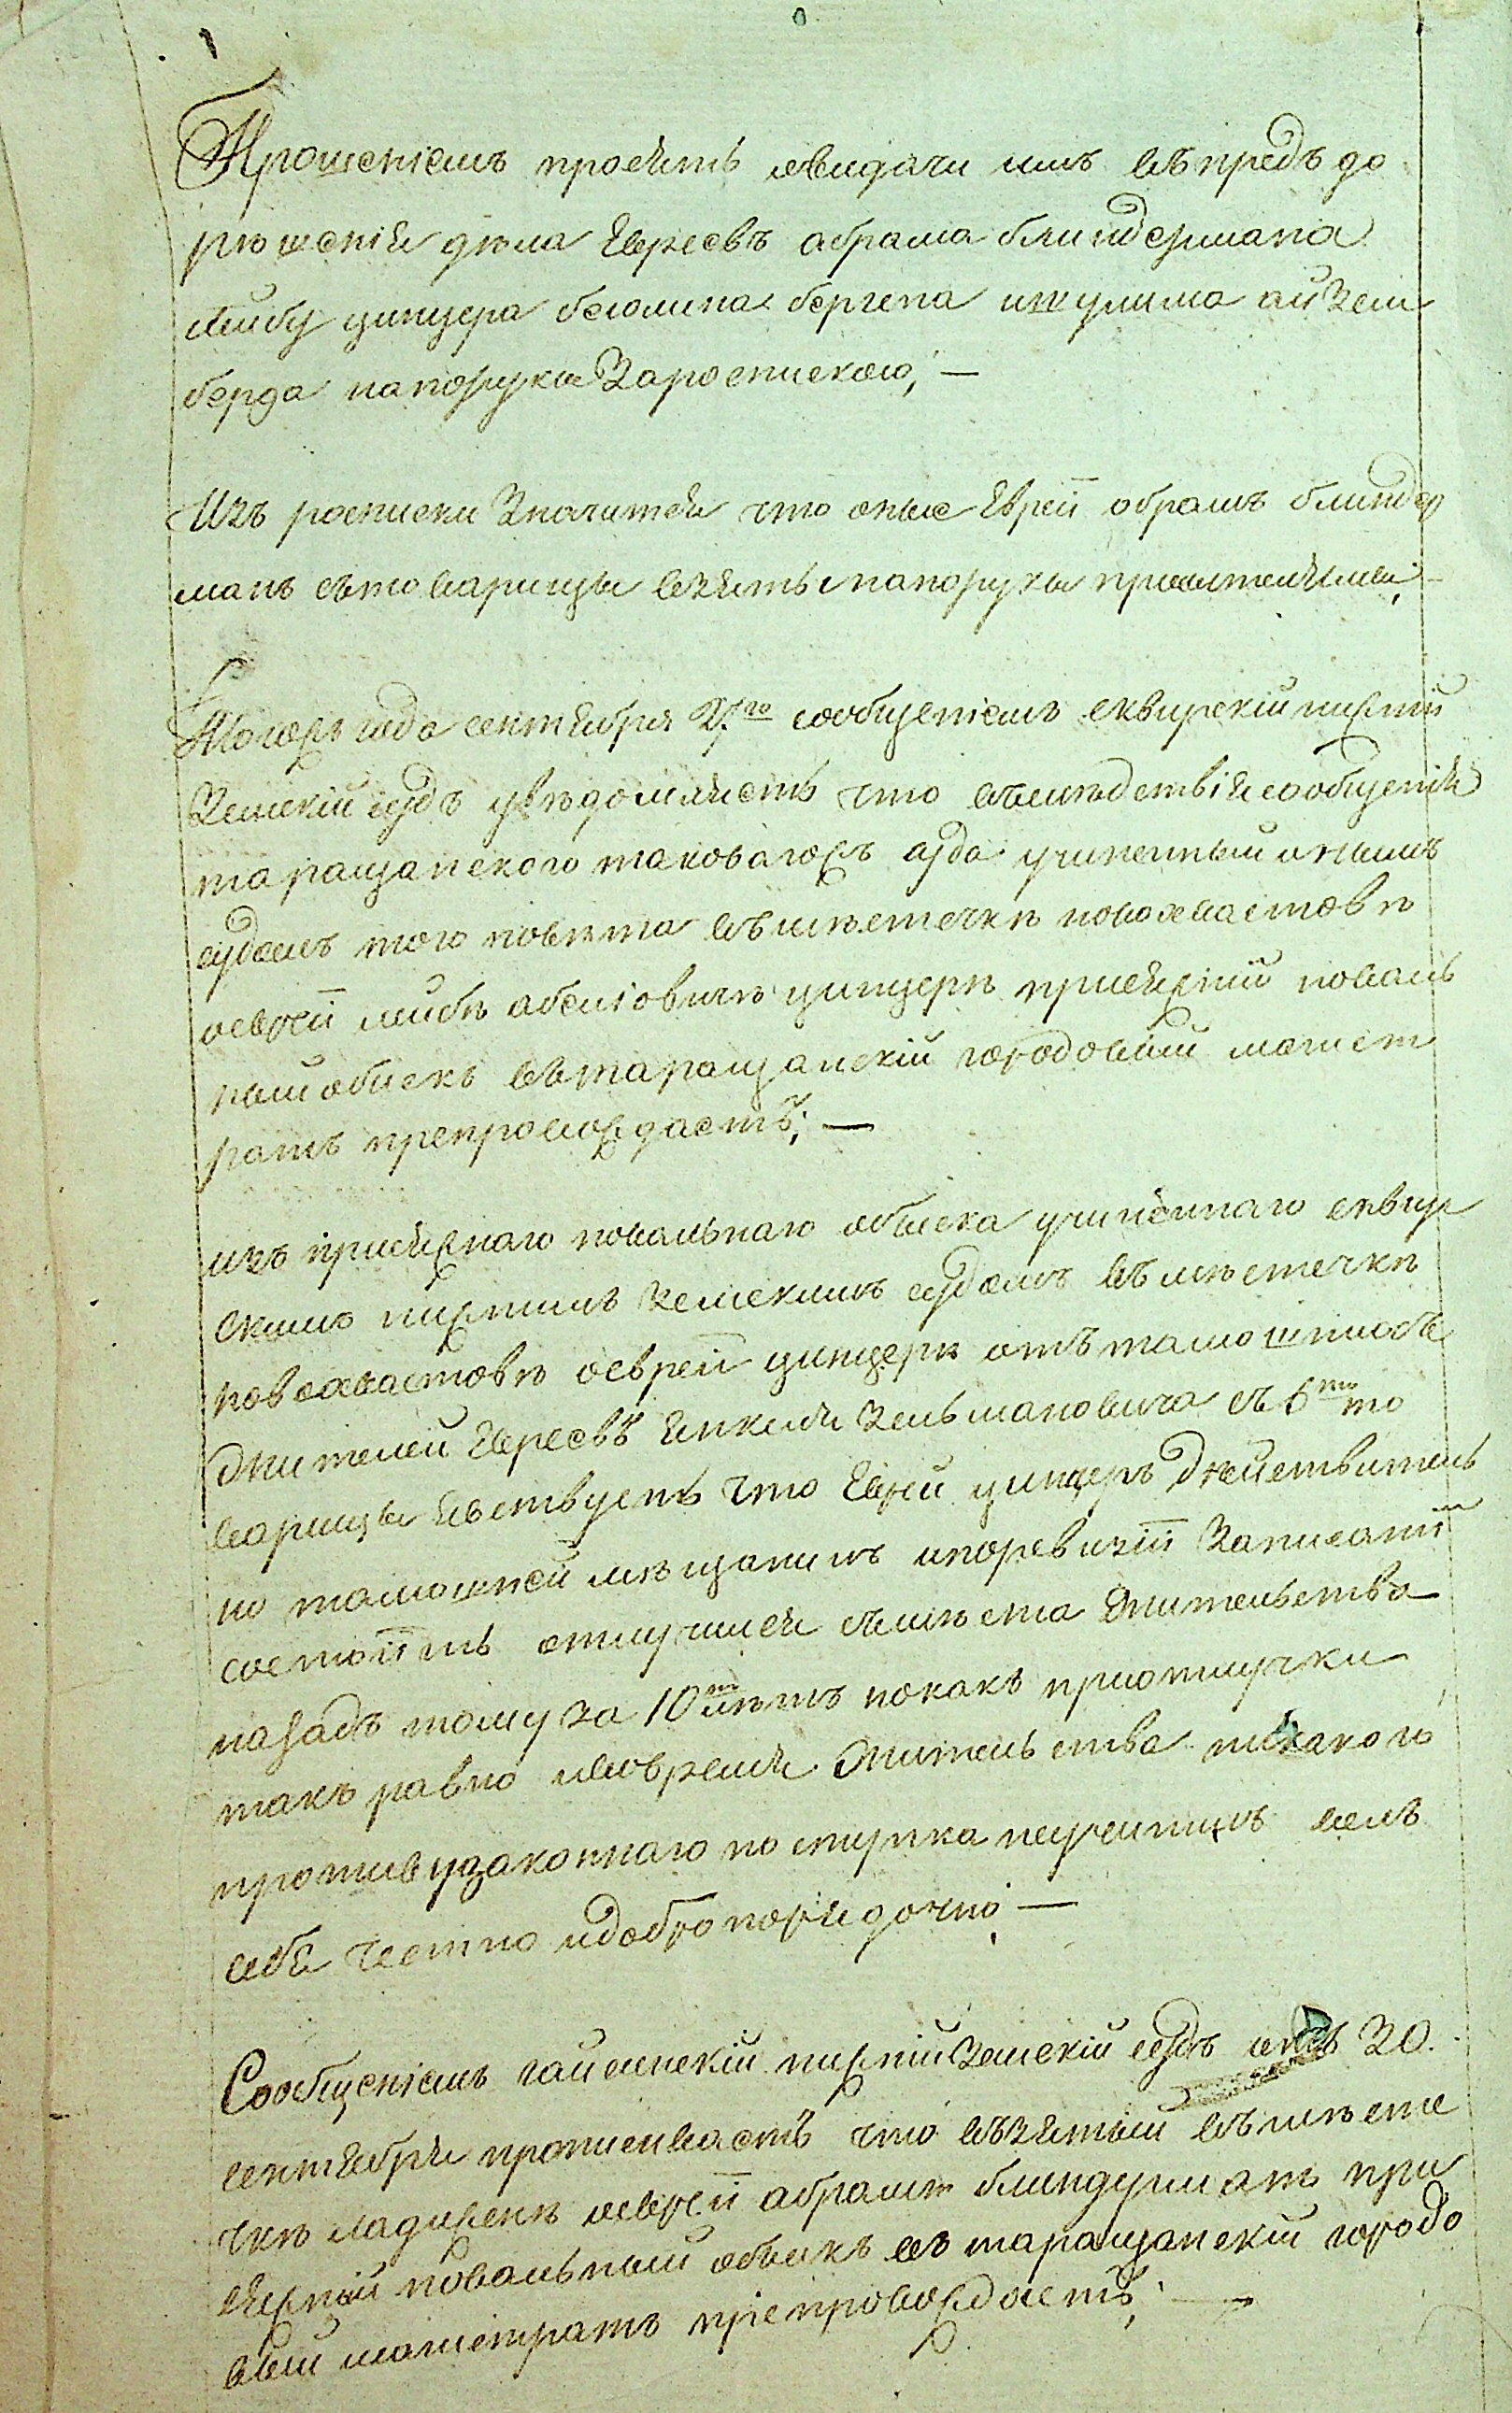 Прошениемъ просятъ овидачи имъ въпредъ до
решения дѣла Евреевъ абрама блиндермана
лейбу цинцера беюмина бергена ишулима айзем
берда напоруки Зароспискою, —
Изъ росписки Значится что оные Евреи абрамъ блиндер
манъ стоварищы взяты напоруки приятелями; —
Тогожъ года сентября 27го сообщениемъ сквирский нижний
Земский судъ увѣдомляетъ что въслѣдствие сообщения
таращанского таковагожъ суда учиненный онымъ
судомъ того повѣта въмѣстечкѣ новохвастовѣ
оеврей лейбѣ абелиовичѣ цинцерѣ присяжний поваль
ный обискъ втаращанский городовый магист
ратъ препровождаетъ; —
изъ присяжнаго повальнаго обыска учиненнаго сквир
скимъ нижнимъ земскимъ судомъ въ мѣстечкѣ
новохвастовѣ оеврей цинцерѣ отъ тамошнихъ
жителей Евреевъ Янкеля Зельмановича съ 6то то
варищы явствуетъ что Еврей цинцеръ дѣйствитель
но тамошней мѣщанинъ ипоревизии Записании
состоитъ отлучился сѣмѣста жительства
назадъ тому за 10ть лѣтъ нокакъ приотлучки
такъ равно ивовремя жительства никакого
противузаконнаго поступка неучинилъ велъ
себя честно идобропорядочно —
Сообщениемъ гайсинский нижний Земский судъ отъ 30.
сентября прописиваетъ что взятый въмѣсте
чкѣ ладыженѣ оеврей абрамѣ блиндурманѣ при
сяжный повальный обыскъ въ таращанский городо
вый магистратъ препровождаетъ; —